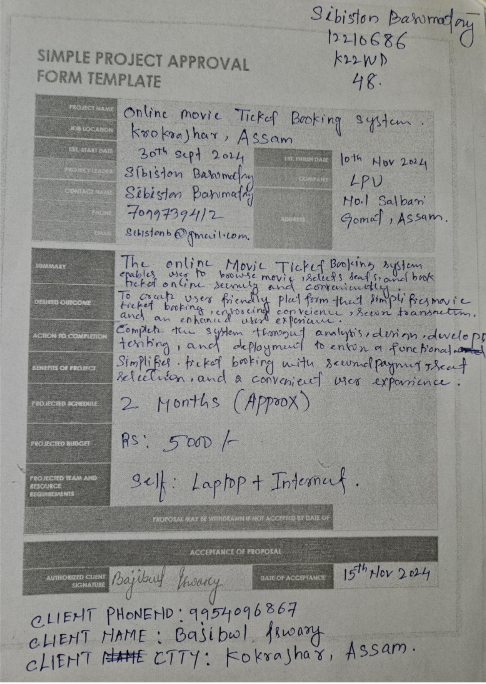 Sibiston Basumatary
12210686
K22WD
48.
SIMPLE PROJECT APPROVAL
FORM TEMPLATE
PROJECT NAME Online movie Ticket Booking System.
JOB LOCATION Krokrajhar, Assam
EST. START DATE 30th Sept 2024 EST. FINISH DATE 10th Nov 2024
PROJECT LEADER Sibiston Basumatary COMPANY LPU
CONTACT NAME Sibiston Basumatary ADDRESS No.1 Salbari
PHONE 7099739412 Gomaf, Assam.
EMAIL Sibistonb@gmail.com.
SUMMARY The online Movie Ticket Booking System
enables user to browse movie, selects seats, and book
ticket online securly and conveniently.
DESIRED OUTCOME To create user friendly platform that simplifies movie
ticket booking, convience, secure transaction,
and an enhanced user experience.
ACTION TO COMPLETION Complete the system through analysis, design, develop
testing, and deployment to a functional
BENEFITS OF PROJECT Simplifies ticket booking with secured payment, seat
selection, and a convenient user experience.
PROJECTED SCHEDULE 2 Months (Approx)
PROJECTED BUDGET RS: 5000/-
PROJECTED TEAM AND
RESOURCE
REQUIREMENTS Self: Laptop + Internet.
PROPOSAL MAY BE WITHDRAWN IF NOT ACCEPTED BY DATE OF
ACCEPTANCE OF PROPOSAL
AUTHORIZED CLIENT
SIGNATURE Bajibul DATE OF ACCEPTANCE 15th Nov 2024
CLIENT PHONENO: 9954096867
CLIENT NAME: Bajibul
CLIENT CITY: Kokrajhar, Assam.